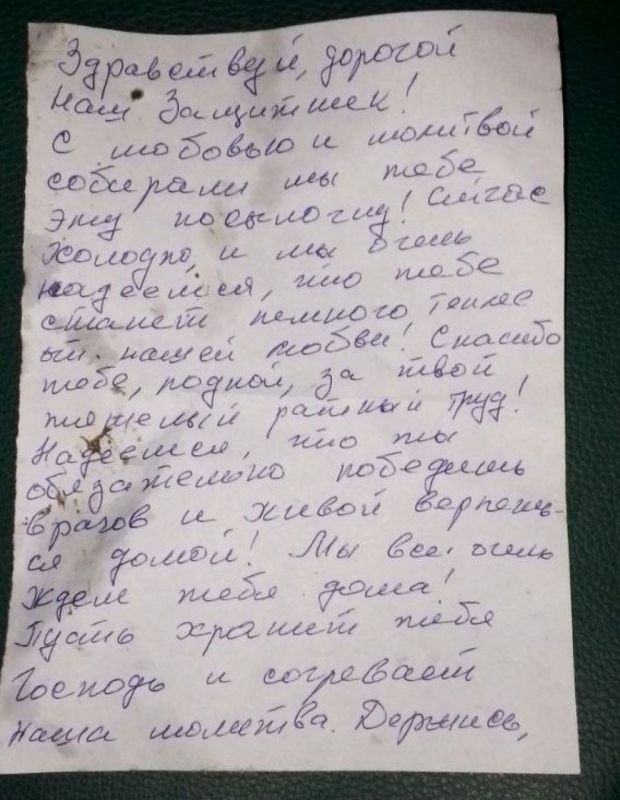 Здравствуй, дорогой
Наш Защитник!
С любовью и молитвой
собирали мы тебе
эту посылочку! Сейчас
холодно, и мы очень
надеемся, что тебе
станет немного теплее
от нашей любви! Спасибо
тебе, родной, за твой
тяжелый ратный труд!
Надеемся, что ты
обязательно победишь
врагов и живой вернешь-
ся домой! Мы все очень
ждем тебя дома!
Пусть хранит тебя
Господь и согревает
наша молитва. Держись,